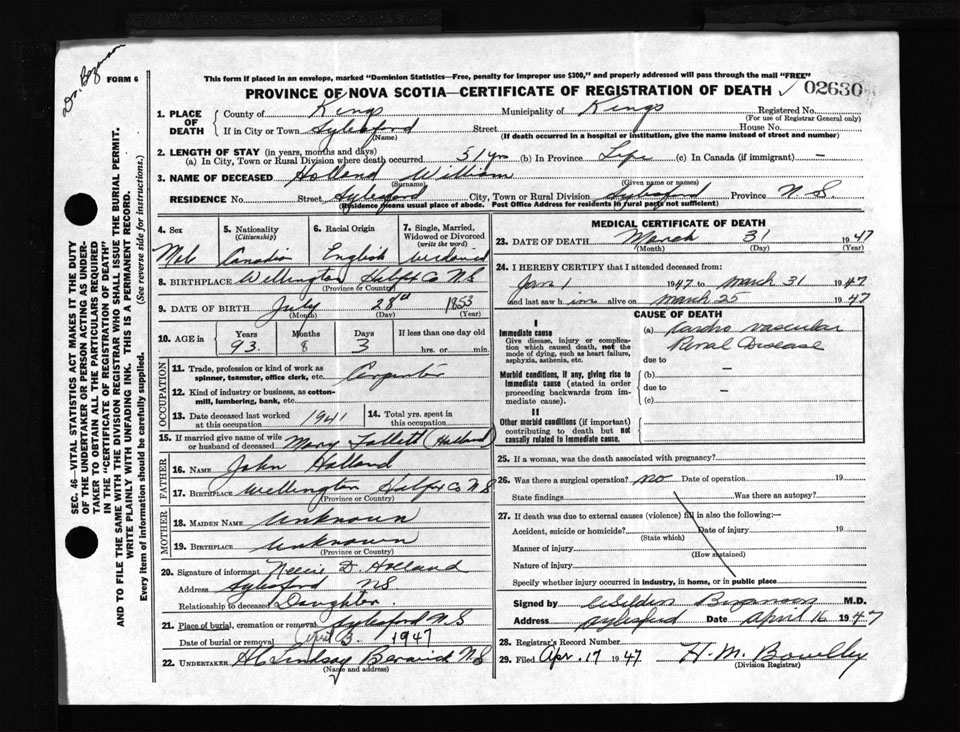 FORM 6
This form if placed in an envelope, marked "Dominion Statistics—Free, penalty for improper use $300," and properly addressed will pass through the mail "FREE"
PROVINCE OF NOVA SCOTIA—CERTIFICATE OF REGISTRATION OF DEATH 02630
1. PLACE OF DEATH County of Kings Municipality of Kings Registered No.
(For use of Registrar General only)
If in City or Town Aylesford Street House No.
(Name) (If death occurred in a hospital or institution, give the name instead of street and number)
2. LENGTH OF STAY (in years, months and days)
(a) In City, Town or Rural Division where death occurred 51 yrs (b) In Province Life (c) In Canada (if immigrant) —
3. NAME OF DECEASED Holland William
(Surname) (Given name or names)
RESIDENCE No. Street Aylesford City, Town or Rural Division Aylesford Province N.S.
(Residence means usual place of abode. Post Office Address for residents in rural parts not sufficient)
4. Sex Male
5. Nationality (Citizenship) Canadian
6. Racial Origin English
7. Single, Married, Widowed or Divorced (write the word) Widowed
8. BIRTHPLACE Wellington Halifx Co N.S
(Province or Country)
9. DATE OF BIRTH July 28th 1853
(Month) (Day) (Year)
10. AGE in Years 93 Months 8 Days 3 If less than one day old
hrs. or min.
OCCUPATION
11. Trade, profession or kind of work as spinner, teamster, office clerk, etc. Carpenter
12. Kind of industry or business, as cotton-mill, lumbering, bank, etc.
13. Date deceased last worked at this occupation 1941
14. Total yrs. spent in this occupation
15. If married give name of wife or husband of deceased Mary Follett (Holland)
FATHER
16. NAME John Holland
17. BIRTHPLACE Wellington Halfx Co N.S
(Province or Country)
MOTHER
18. MAIDEN NAME Unknown
19. BIRTHPLACE Unknown
(Province or Country)
20. Signature of informant Nellie D. Holland
Address Aylesford NS
Relationship to deceased Daughter.
21. Place of burial, cremation or removal Aylesford N.S
Date of burial or removal April 3. 1947
22. UNDERTAKER Lindsay Berwick N.S
(Name and address)
MEDICAL CERTIFICATE OF DEATH
23. DATE OF DEATH March 31 1947
(Month) (Day) (Year)
24. I HEREBY CERTIFY that I attended deceased from:
Jan 1 1947 to March 31 1947
and last saw him alive on March 25 1947
CAUSE OF DEATH
I
Immediate cause (a) Cardio vascular
Give disease, injury or complication which caused death, not the mode of dying, such as heart failure, asphyxia, asthenia, etc. Renal Disease
due to
Morbid conditions, if any, giving rise to immediate cause (stated in order proceeding backwards from immediate cause). (b) —
due to —
(c)
II
Other morbid conditions (if important) contributing to death but not causally related to immediate cause.
25. If a woman, was the death associated with pregnancy?
26. Was there a surgical operation? no Date of operation 19
State findings Was there an autopsy?
27. If death was due to external causes (violence) fill in also the following:—
Accident, suicide or homicide? Date of injury 19
(State which)
Manner of injury
(How sustained)
Nature of injury
Specify whether injury occurred in industry, in home, or in public place
Signed by M.D.
Address Aylesford Date April 16 1947
28. Registrar's Record Number
29. Filed Apr. 17 1947 H. M.
(Division Registrar)
SEC. 46—VITAL STATISTICS ACT MAKES IT THE DUTY
OF THE UNDERTAKER OR PERSON ACTING AS UNDER-
TAKER TO OBTAIN ALL THE PARTICULARS REQUIRED
IN THE "CERTIFICATE OF REGISTRATION OF DEATH"
AND TO FILE THE SAME WITH THE DIVISION REGISTRAR WHO SHALL ISSUE THE BURIAL PERMIT.
WRITE PLAINLY WITH UNFADING INK. THIS IS A PERMANENT RECORD.
Every item of information should be carefully supplied. (See reverse side for instructions.)